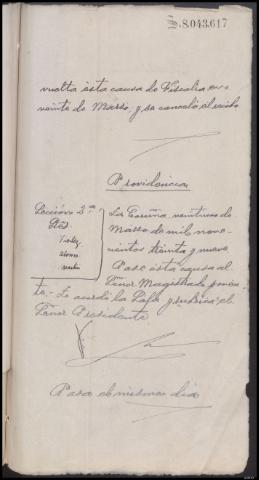 8.043.617
vuelta esta causa de Fiscalia en
veinte de Marzo, y se canceló el recibo
Providencia
Sección 2ª
Stes.
La Coruña veintiuno de
Marzo de mil nove-
cientos treinta y nueve
Pase esta causa al
Señor Magistrado ponen-
te. Lo acordó la Sala y rubrica el
Señor Presidente
Pasa el mismo día